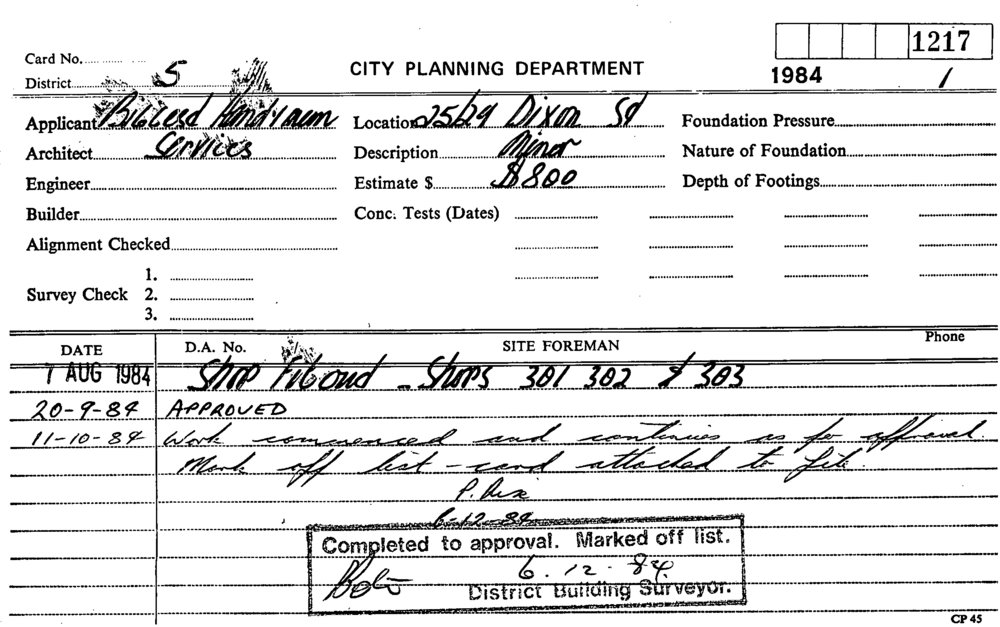 1217
Card No.
CITY PLANNING DEPARTMENT
1984 /
District 5
Applicant Handyman Location 25/29 Dixon St Foundation Pressure
Architect Services Description Minor Nature of Foundation
Engineer Estimate $ $800 Depth of Footings
Builder Conc. Tests (Dates)
Alignment Checked
1.
Survey Check 2.
3.
DATE D.A. No. SITE FOREMAN Phone
7 AUG 1984 Shop - Shops 301 302 & 303
20-9-84 APPROVED
11-10-84 Work commenced and continues as per approval.
Mark off list - card attached to file.
6-12-84
Completed to approval. Marked off list.
6.12.84.
District Building Surveyor.
CP 45